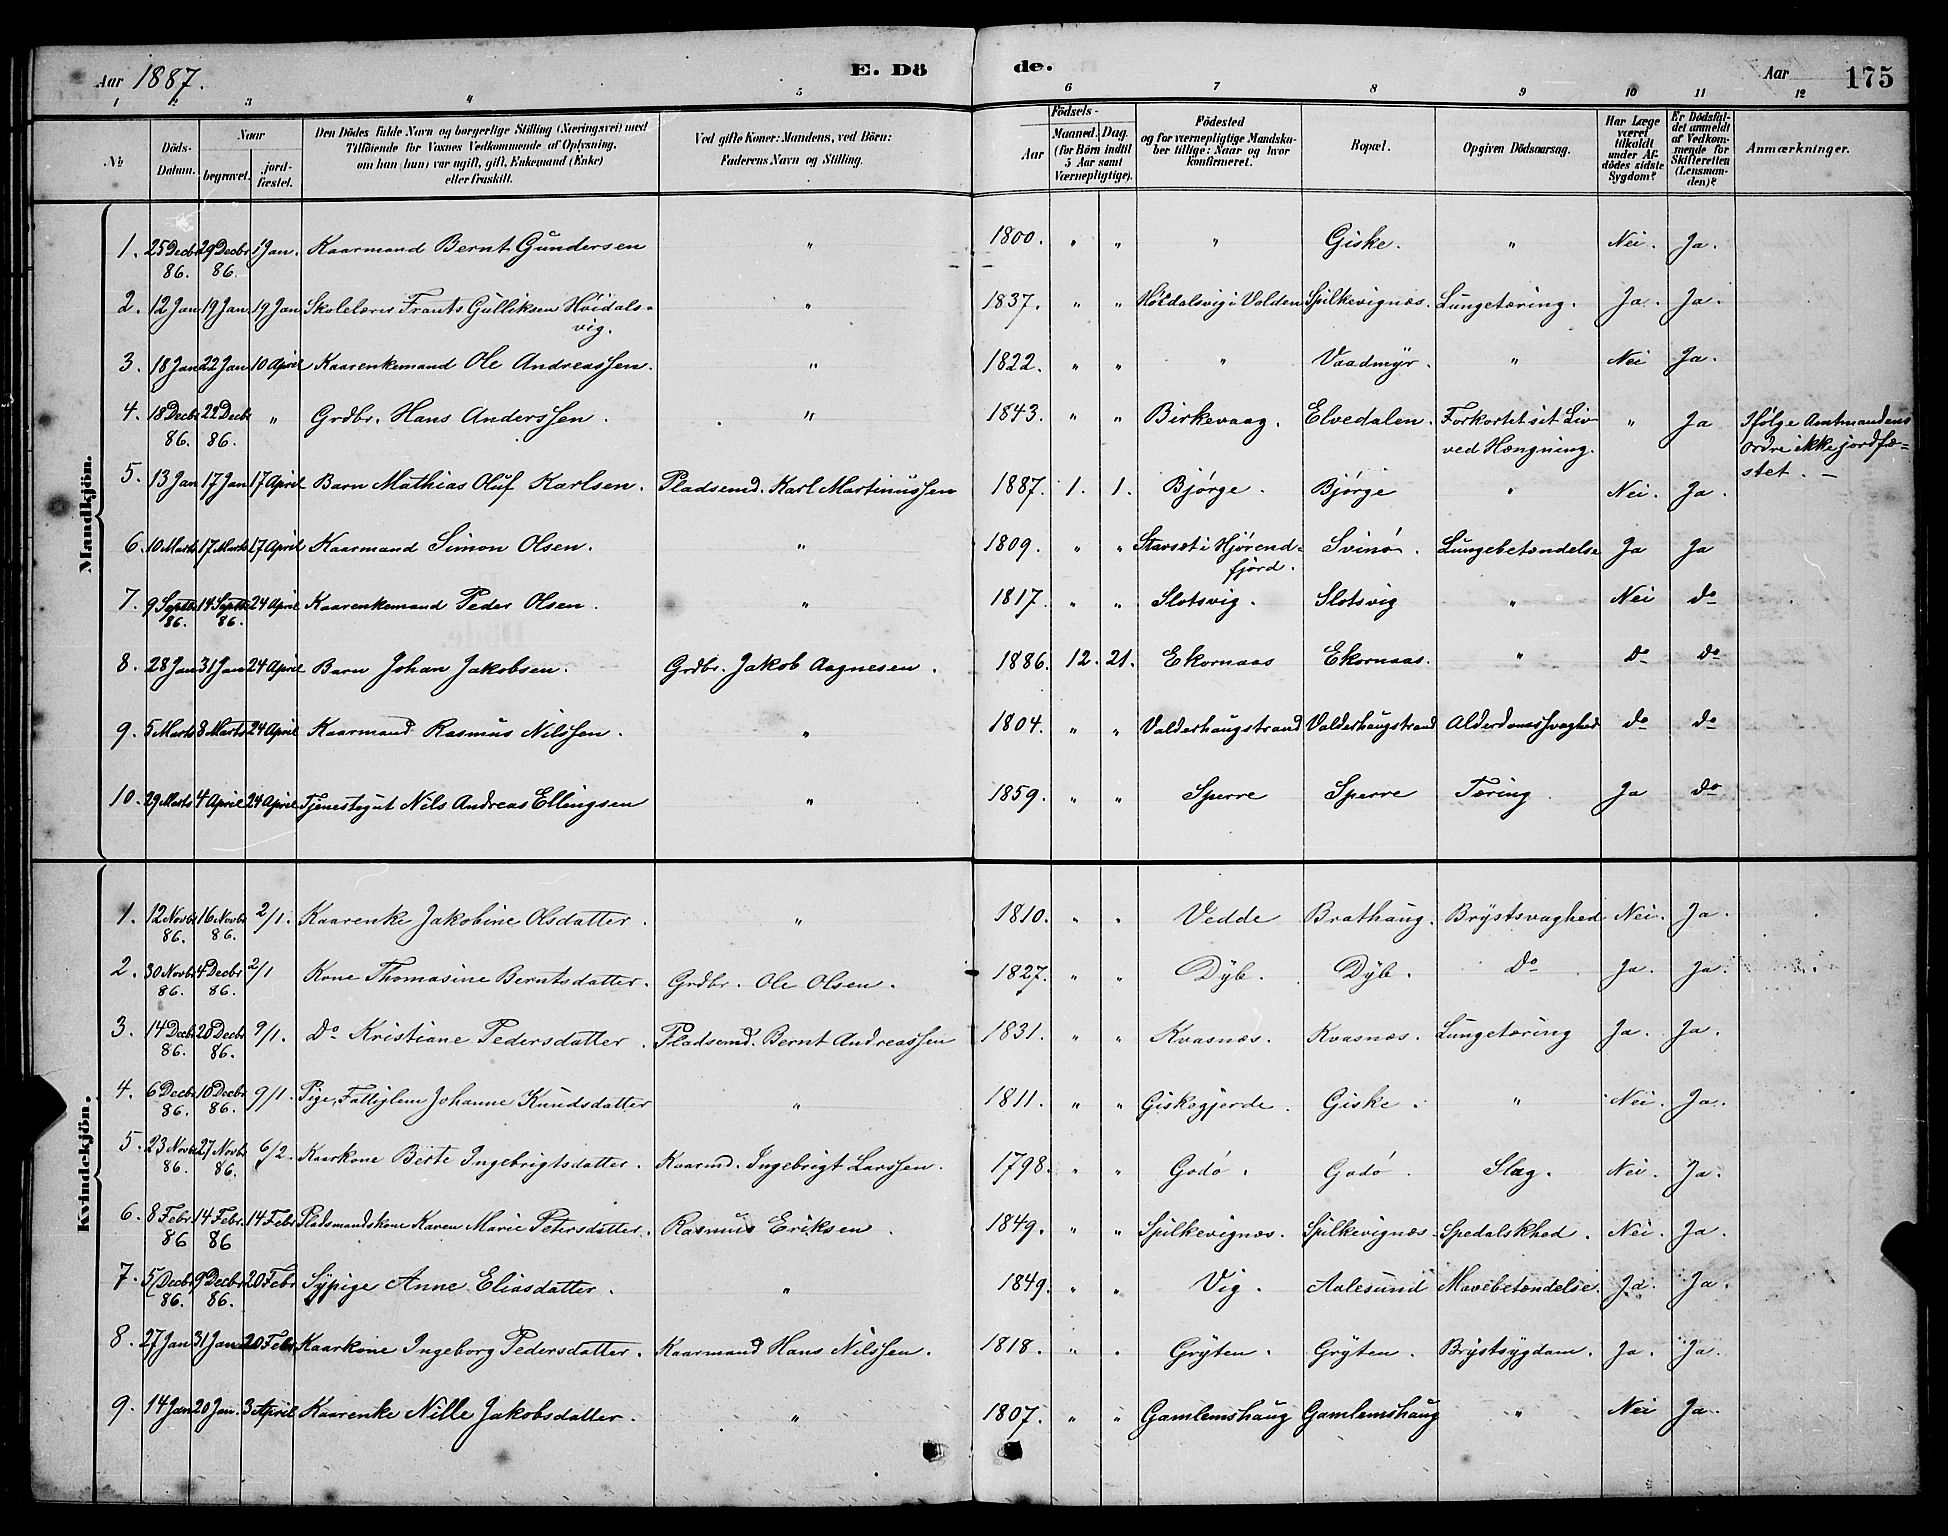 Aar 1887. E. Dö de. Aar 175
1 2 3 4 5 6 7 8 9 10 11 12
No
Döds-Datum.
Naar
begravet.
jordfæstet.
Den Dödes fulde Navn og borgerlige Stilling (Næringsvei) med
Tilföiende for Voxnes Vedkommende af Oplysning,
om han (hun) var ugift, gift, Enkemand (Enke)
eller fraskilt.
Ved gifte Koner: Mandens, ved Börn:
Faderens Navn og Stilling.
Födsels-
Aar
Maaned. Dag.
(for Börn indtil
5 Aar samt
Værnepligtige).
Födested
og for værnepligtige Mandska-
ber tillige: Naar og hvor
konfirmeret.
Bopæl.
Opgiven Dödsaarsag.
Har Læge
været
tilkaldt
under Af-
dödes sidste
Sygdom?
Er Dödsfal-
det anmeldt
af Vedkom-
mende for
Skifteretten
(Lensman-
den)?
Anmærkninger.
Mandkjön.
1. 25 Decbr 86. 29 Decbr 86. 1 Jan. Kaarmand Bernt Gundersen " 1800. " " " Giske. " Nei. Ja.
2. 12 Jan 19 Jan. 19 Jan Skolelærer Frants Gulliksen Høidals-
vig. " 1837. " " Høidalsvig i Volden Spilkevignæs. Lungetæring. Ja. Ja.
3. 18 Jan 22 Jan 10 April Kaarenkemand Ole Andreassen. " 1822. " " " Vaadmyr. " Nei Ja.
4. 18 Decbr 86. 22 Decbr 86. " Grdbr. Hans Anderssen. " 1843. " " Birkevaag. Elvedalen. Forkortet sit Liv
ved Hængning. " Ja Ifølge Amtmandens
Ordre ikke jordfæ-
stet. —
5. 13 Jan 17 Jan 17 April Barn Mathias Oluf Karlsen. Pladsemd. Karl Martinussen 1887. 1. 1. Bjørge. Bjørge " Nei. Ja.
6. 10 Marts 17 Marts 17 April Kaarmand Simon Olsen. " 1809. " " Stavset i Hjørend-
fjord. Svinø. Lungebetændelse Ja Ja
7. 9 Septbr 86. 18 Septbr 86. 24 April Kaarenkemand Peder Olsen. " 1817. " " Slotsvig. Slotsvig " Nei do
8. 28 Jan 31 Jan 24 April Barn Johan Jakobsen. Grdbr. Jakob Aagnesen. 1886. 12. 21. Ekornaas Ekornaas. " do do
9. 5 Marts 8 Marts 24 April Kaarmand Rasmus Nilssen. " 1804. " " Valderhaugstrand Valderhaugstrand Alderdomssvaghed do do
10. 29 Marts 4 April 24 April Tjenestegut Nils Andreas Ellingsen " 1859. " " Sperre Sperre Tæring. Ja do
Kvindekjön.
1. 12 Novbr 86. 16 Novbr 86. 2/1. Kaarenke Jakobine Olsdatter. " 1810. " " Vedde Brathaug. Brystsvaghed Nei. Ja.
2. 30 Novbr 86. 4 Decbr 86. 2/1 Kone Thomasine Berntsdatter. Grdbr. Ole Olsen. 1827. " " Dyb. Dyb. Do Ja. Ja.
3. 14 Decbr 86. 20 Decbr 86. 9/1. Do Kristiane Pedersdatter. Pladsemd. Bernt Andreassen 1831. " " Kvasnæs. Kvasnæs. Lungetæring Ja. Ja.
4. 6 Decbr 86. 10 Decbr 86. 9/1. Pige, Fattiglem Johanne Knudsdatter " 1811. " " Giskegjerde. Giske. " Nei. Ja.
5. 23 Novbr 86. 27 Novbr 86. 6/2. Kaarkone Berte Ingebrigtsdatter. Kaarmd. Ingebrigt Larssen. 1798. " " Godø. Godø. Slag. Nei. Ja.
6. 8 Febr. 86 14 Febr. 86 14 Febr Pladsmandskone Karen Marie Petersdatter. Rasmus Eriksen. 1849. " " Spilkevignæs. Spilkevignæs. Spedalskhed. Nei. Ja.
7. 5 Decbr 86. 9 Decbr 86. 20 Febr Sypige Anne Eliasdatter. " 1849. " " Vig. Aalesund Mavebetændelse. Ja. Ja.
8. 27 Jan 31 Jan 20 Febr Kaarkone Ingeborg Pedersdatter. Kaarmand Hans Nilssen. 1818. " " Gryten. Gryten. Brystsygdom. Ja. Ja.
9. 14 Jan 20 Jan. 3 April Kaarenke Nille Jakobsdatter. " 1807. " " Gamlemshaug Gamlemshaug " Nei Ja.